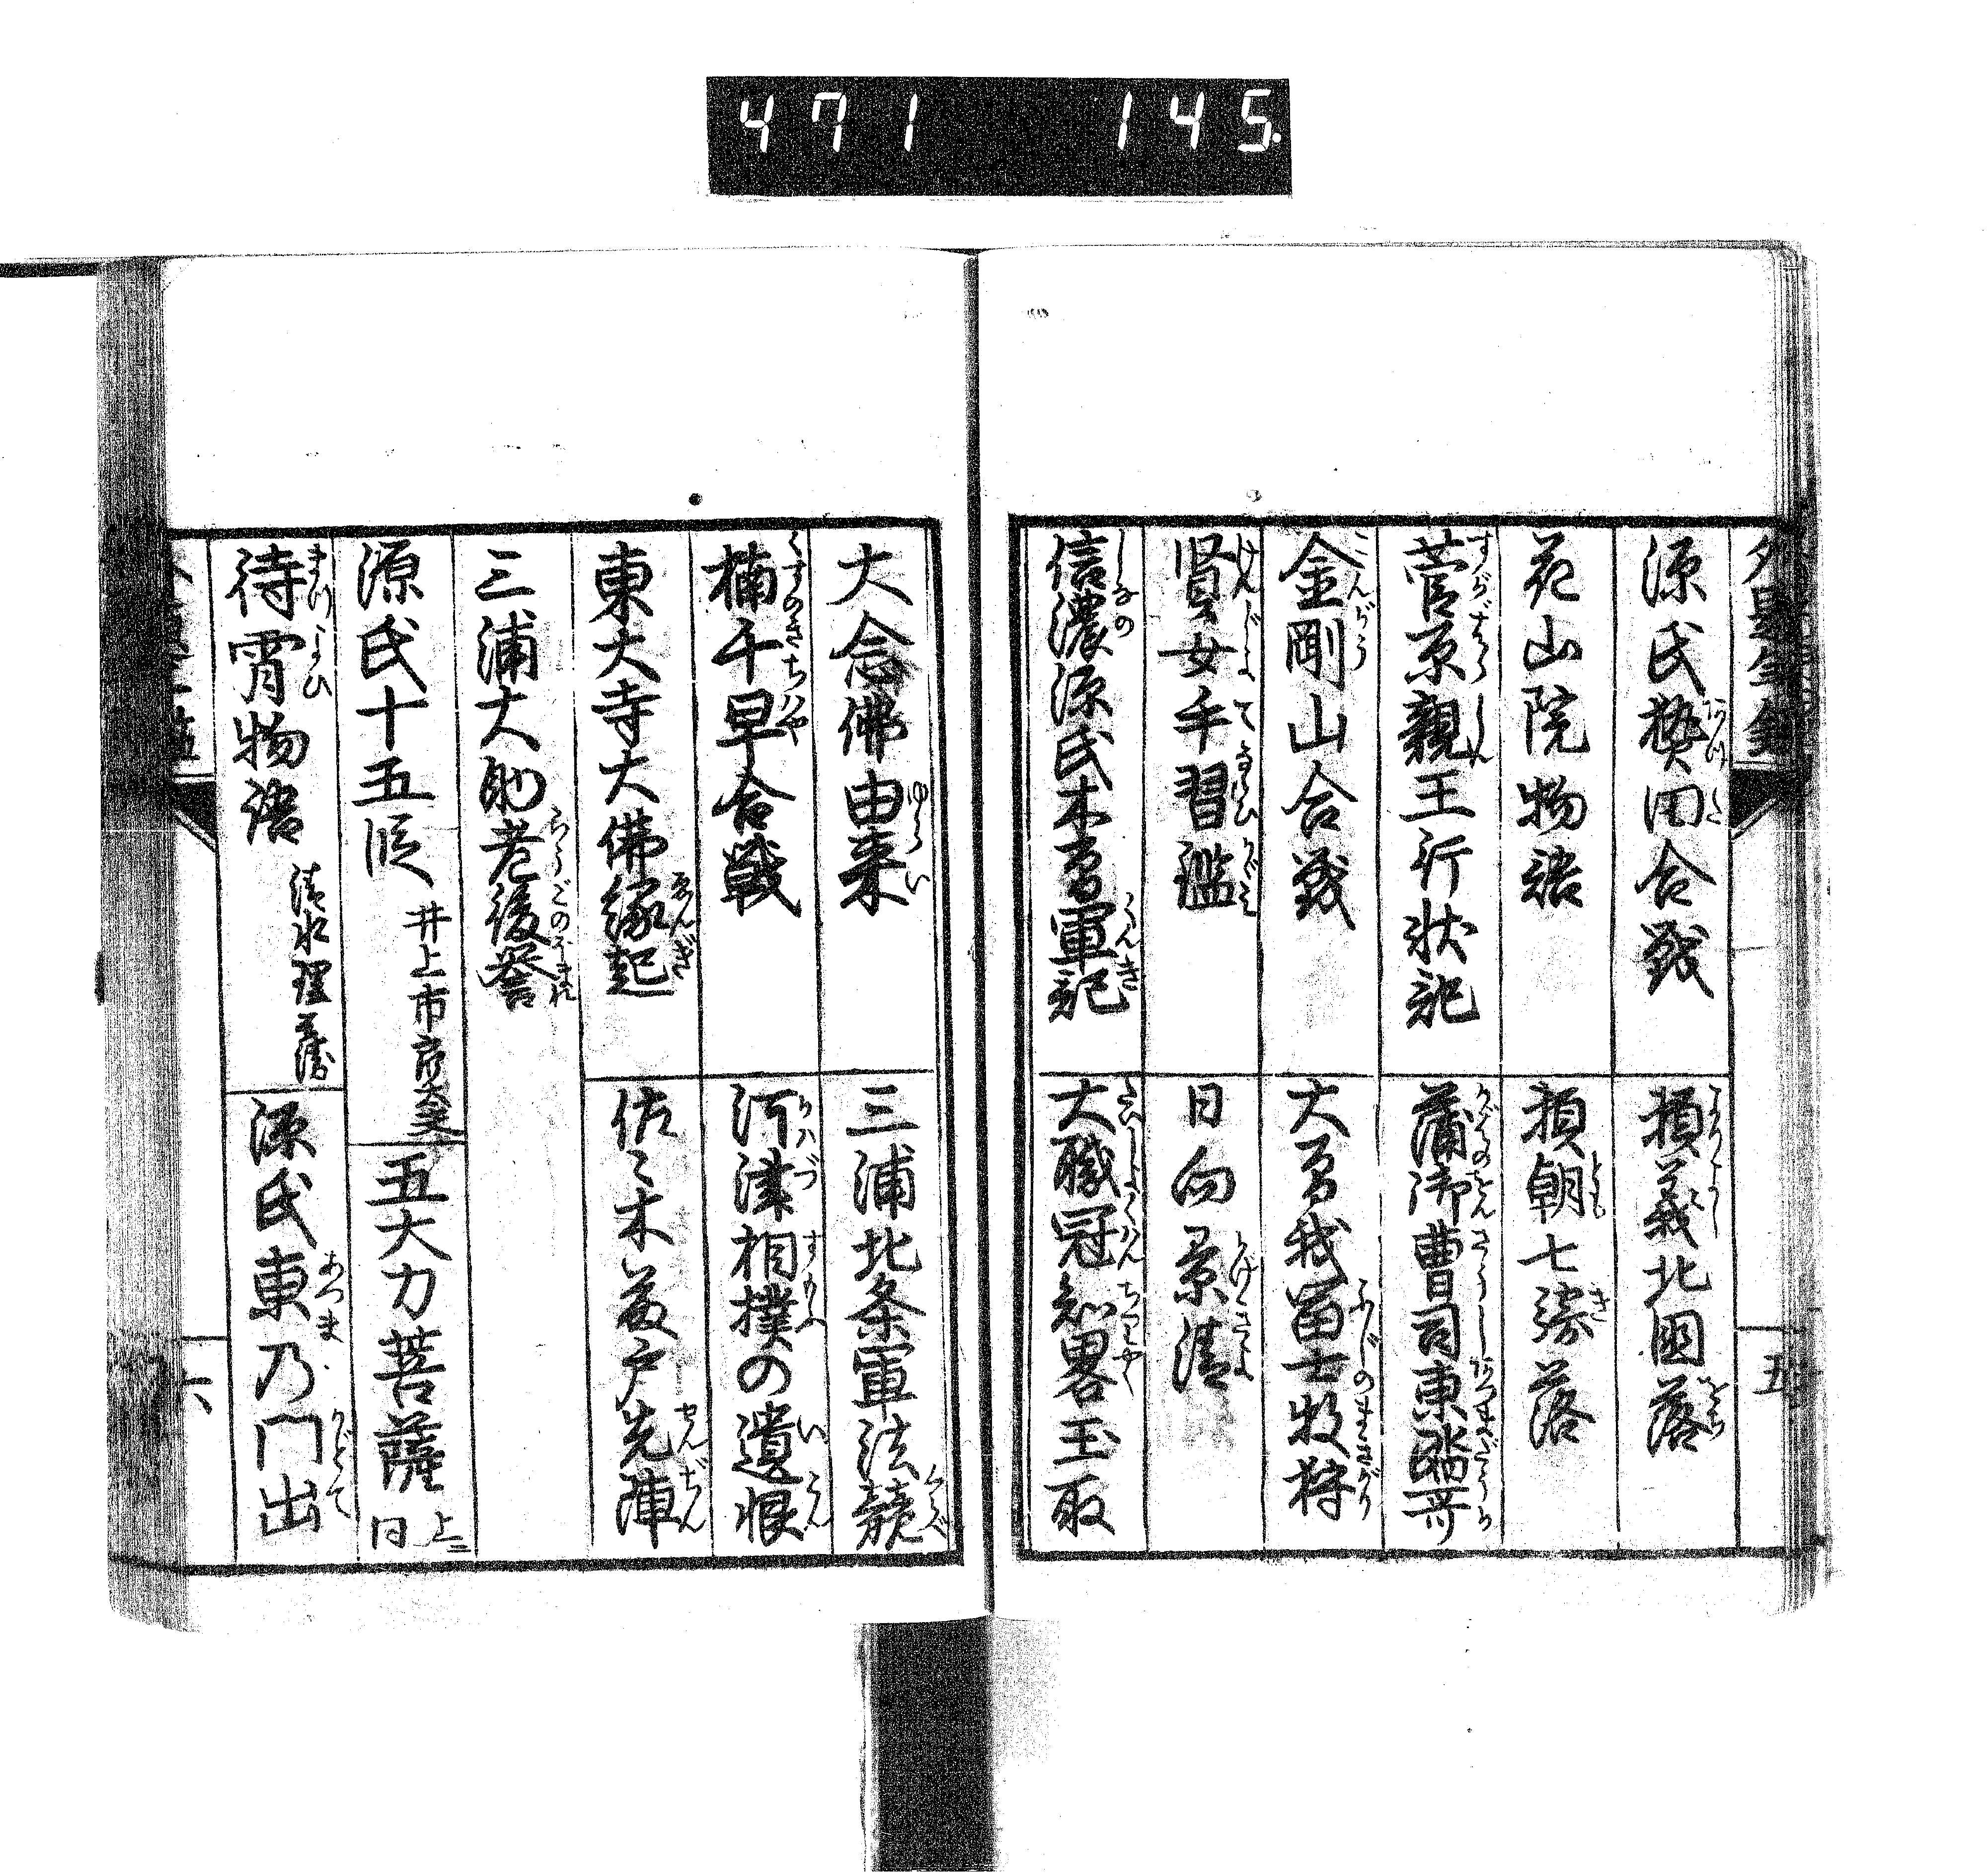 471 145
源氏熱田合戦
頼義北國落
花山院物語
頼朝七騎落
菅原親王行状記
蒲御曹司東
金剛山合戦
大曽我冨士牧狩
賢女手習鑑
日向景清
信濃源氏木曽軍記
大職冠知畧玉取
五
大念佛由来
三浦北条軍法競
楠千早合戦
河津相撲の遺恨
東大寺大佛縁起
佐々木藤戸先陣
三浦大助老後誉
源氏十五段 井上市良太夫
五大力菩薩 上ニ同
待宵物語 清水理兵衛
源氏東乃門出
六